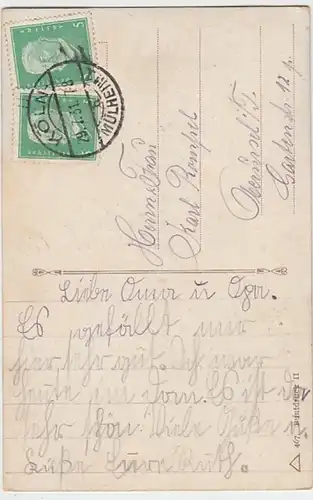 KÖLN-MÜLHEIM
5
5
Herrn u. Frau
Karl Rempel
Oberursel i/T.
Gartenstr. 12 p.
Liebe Oma u Opa.
Es gefällt mir
hier sehr gut. Ich war
heute im Dom. Es ist da
sehr schön. Viele Grüße u.
Küße Eure Ruth.